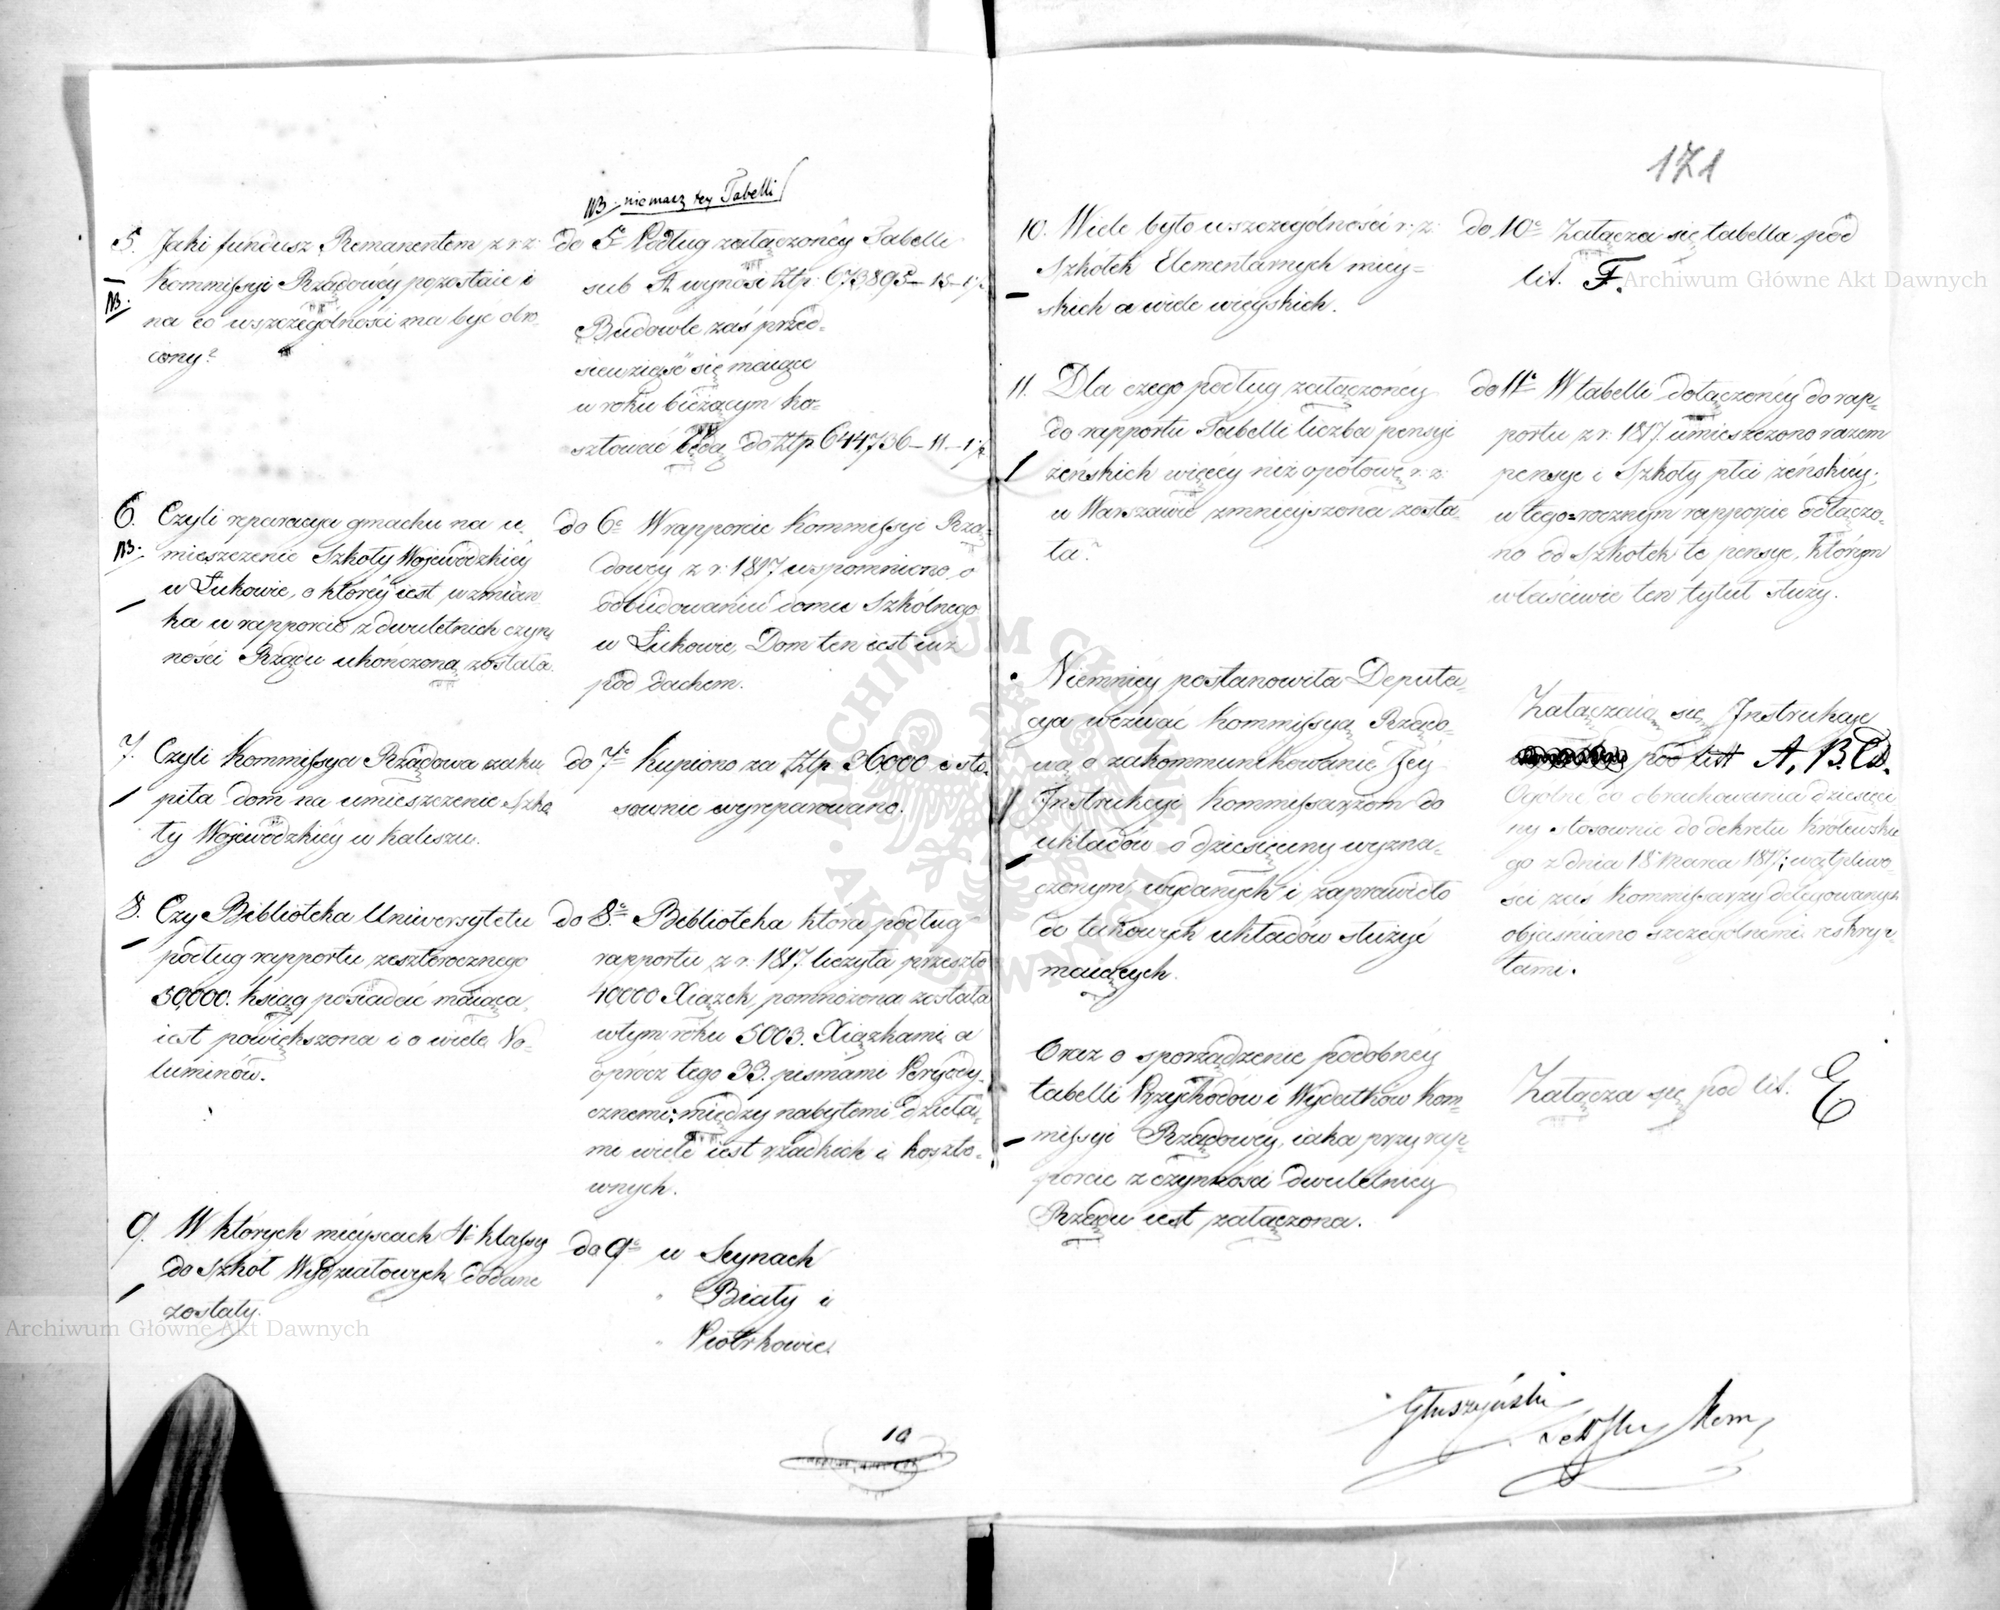 NB. niemasz tey Tabelli
5. Jaki fundusz Remanentem z r: z:
Kommissyi Rządowéy pozostaie i
NB.
na co wszczególności ma być obró-
cony?
do 5º Podług załączonéy Tabelli
sub A wynosi Złp: 673895-15-1
Budowle zaś przed-
siewziąść się maiące
w roku bieżącym ko-
sztować będą do złp 644736-11-1
6. Czyli reparacya gmachu na u-
NB.
mieszczenie Szkoły Wojewódzkiéy
w Łukowie, o któréy iest wzmian-
ka w rapporcie z dwuletnich czyn-
ności Rządu ukończoną została.
do 6º W rapporcie Kommissyi Rzą-
dowey z r: 1817 wspomniono o
odbudowaniu domu Szkólnego
w Łukowie. Dom ten iest iuż
pod dachem.
7. Czyli Kommissya Rządowa zaku-
piła dom na umieszczenie Szko-
ły Wojewódzkiéy w Kaliszu.
do 7º Kupiono za Złp 36,000 i sto-
sownie wyreparowano.
8. Czy Biblioteka Uniwersytetu
podług rapportu zeszłorocznego
50,000. ksiąg posiadać maiąca,
iest powiększona i o wiele Vo-
luminów.
do 8º Biblioteka która podług
rapportu z r. 1817. liczyła przeszło
40,000 Xiążek, pomnożona została
wtym roku 5003. Xiążkami, a
oprócz tego 33. pismami Peryody-
cznemi; między nabytemi dzieła-
mi wiele iest rzadkich i koszto-
wnych.
9. W których mieyscach 4ª klassy
do Szkół Wydziałowych dodane
zostały.
do 9º w Seynach
" Biały i
" Piotrkowie.
10
171
10. Wiele było wszczególności r: z:
Szkółek Elementarnych miey-
skich a wiele wieyskich.
do 10º Załącza się tabella pod
lit. F.
11. Dla czego podług załączonéy
do rapportu Tabelli liczba pensyi
żeńskich więcéy niż opołowę r: z:
w Warszawie zmnieyszona zosta-
ła?
do 11º W tabelli dołączonéy do rap-
portu z r. 1817. umieszczono razem
pensye i Szkoły płci żeńskiéy;
wtego-rocznym rapporcie odłączo-
no od Szkółek te pensye, którym
właściwie ten tytuł służy.
Niemniéy postanowiła Deputa-
cya wezwać Kommissyą Rządo-
wą o zakommunikowanie Jéy
Instrukcyi Kommissarzom do
układów o dziesięciny wyzna-
czonym, wydanych i zaprawidło
do takowych układów służyć
maiących.
Załączaią się Instrukcye
pod litt A, B. C. D.
Ogólne, co obrachowania dziesięci-
ny stosownie do dekretu Królewskie-
go z dnia 18 Marca 1817; wątpliwo-
ści zaś Kommissarzy delegowanych
obiaśniano szczególnemi reskryp-
tami.
Oraz o sporządzenie podobnéy
tabelli Przychodów i Wydatków Kom-
missyi Rządowéy, iaka przy rap-
porcie z czynności dwuletniéy
Rządu iest załączona.
Załącza się pod lit. E
Głuszyński
Archiwum Główne Akt Dawnych
Archiwum Główne Akt Dawnych
ARCHIWUM GŁÓWNE AKT DAWNYCH